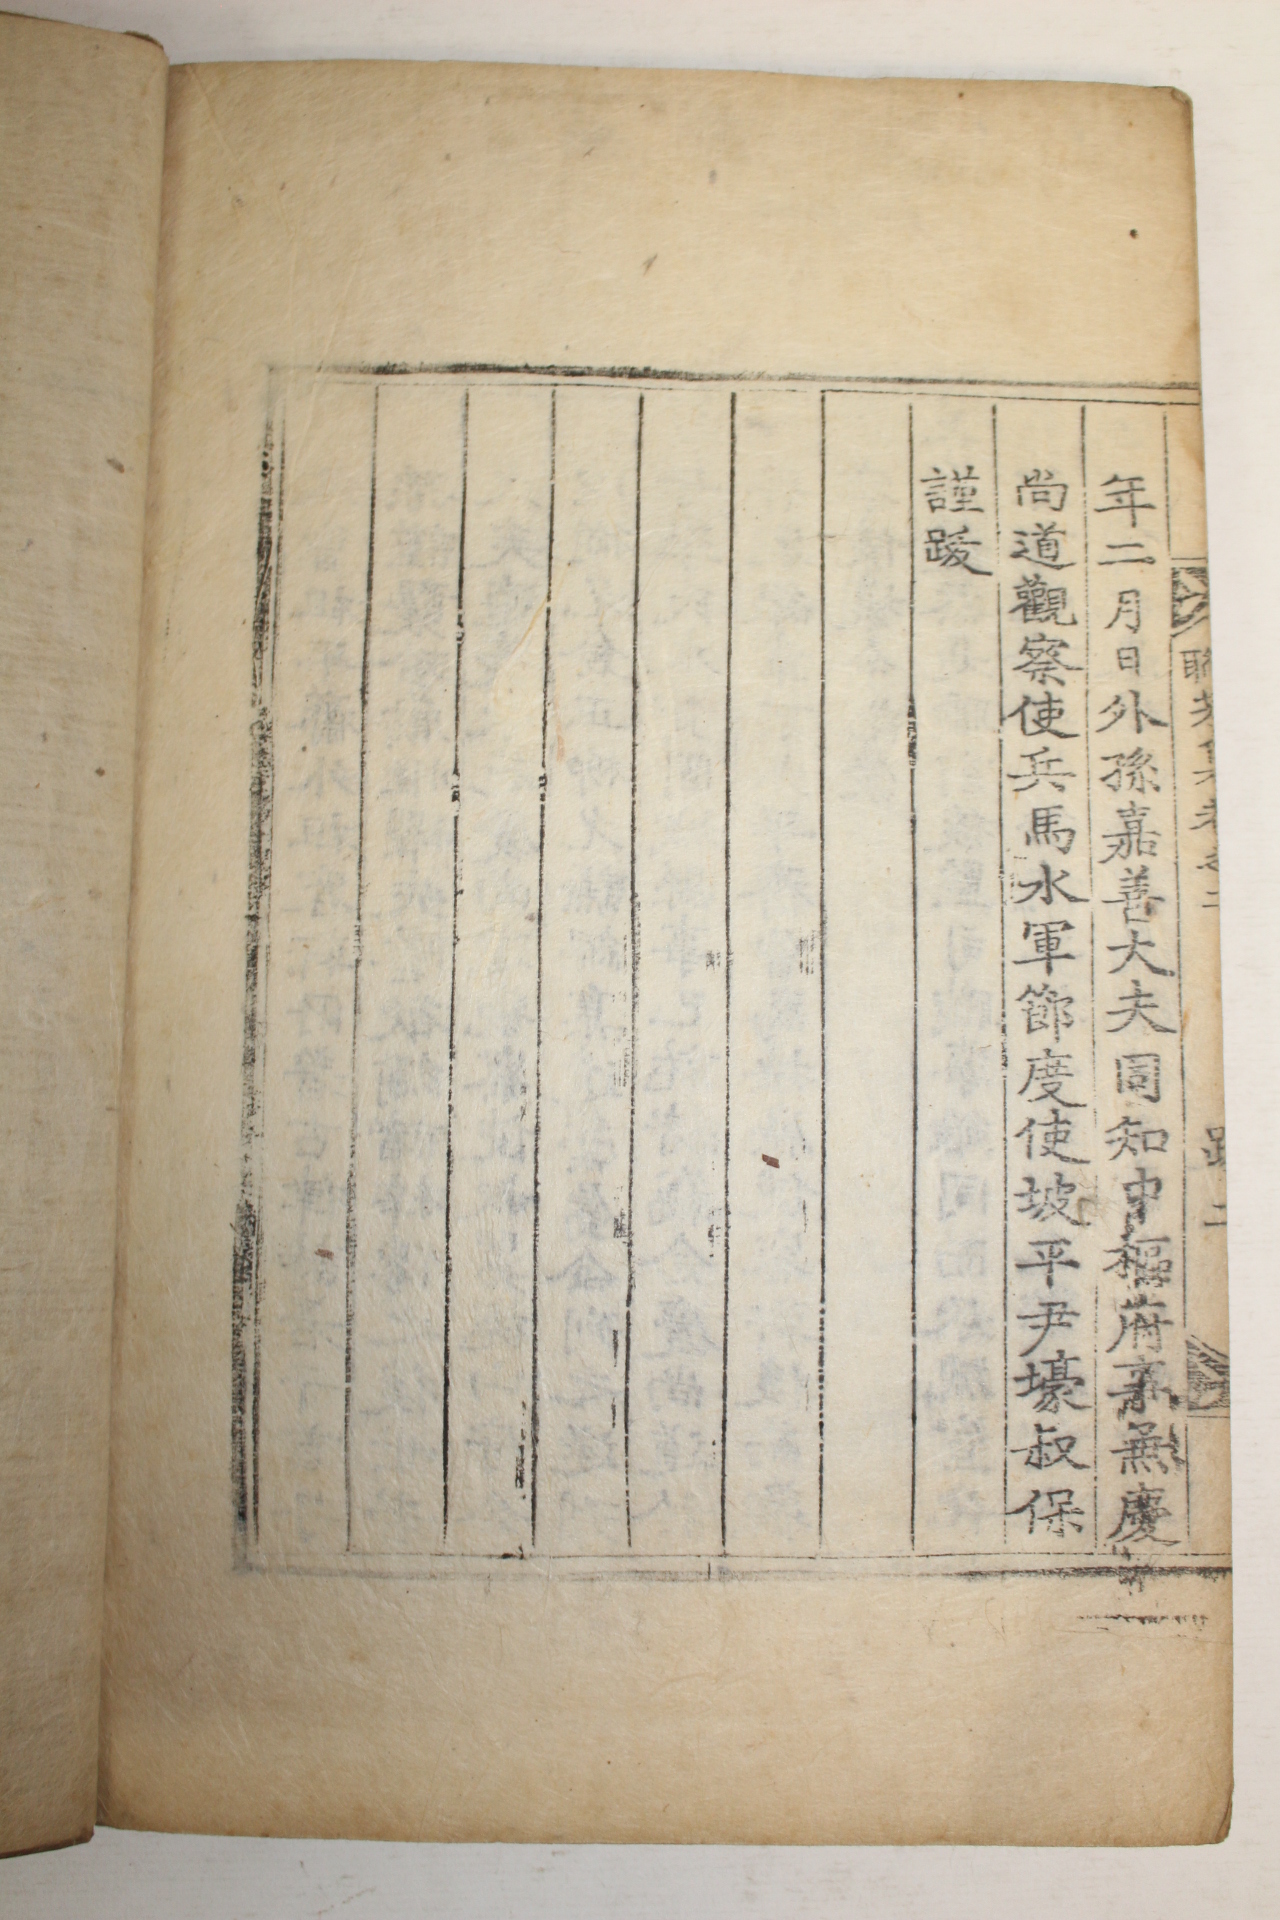 聯芳集卷之二 跋 二
年二月日外孫嘉善大夫同知中樞府事兼慶
尚道觀察使兵馬水軍節度使坡平尹壕叔保
謹跋